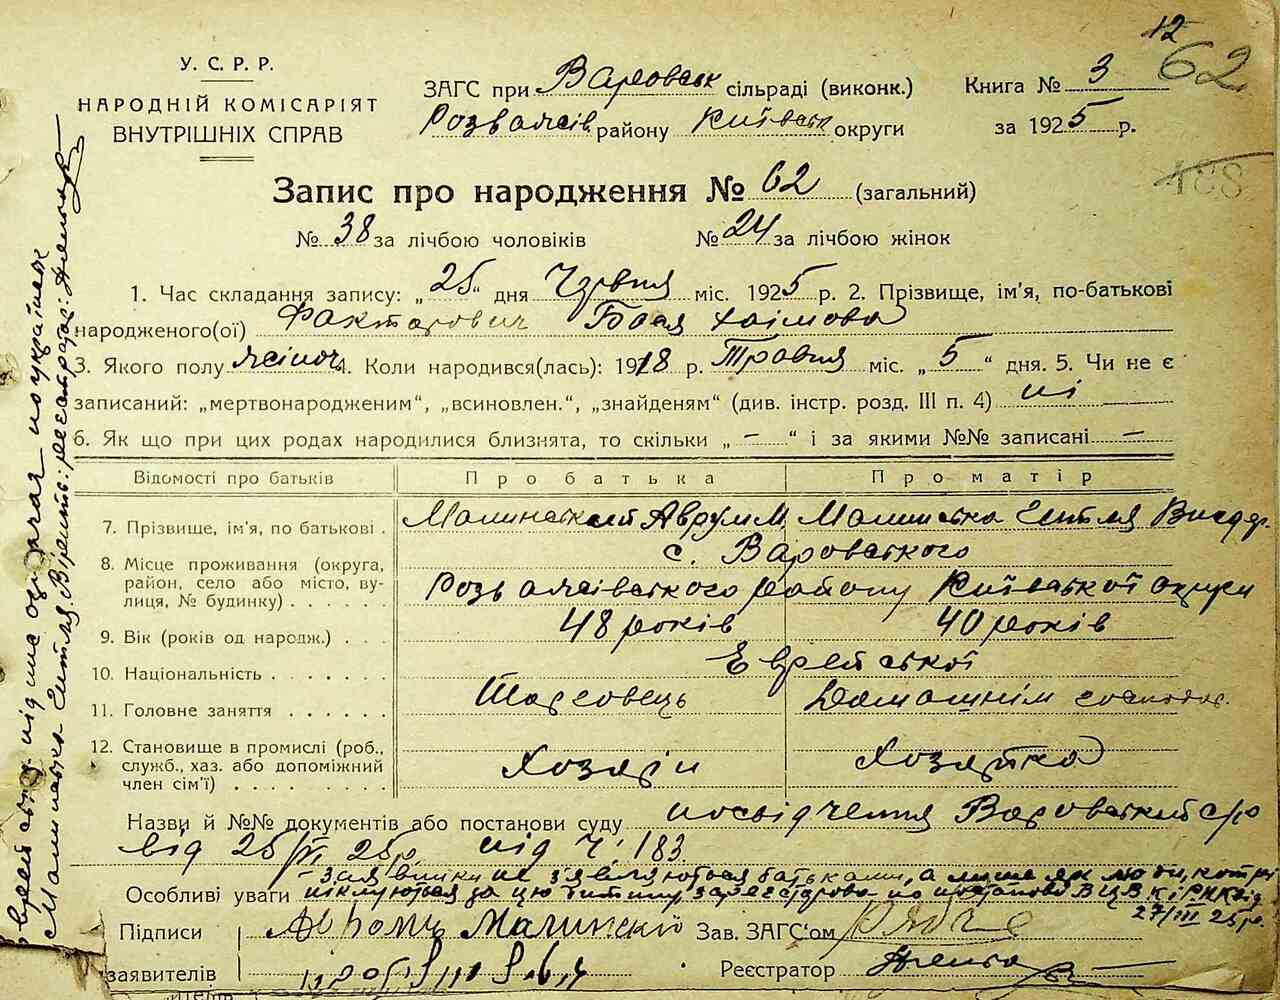 12
62
У. С. Р. Р.
НАРОДНІЙ КОМІСАРІЯТ
ВНУТРІШНІХ СПРАВ
ЗАГС при Варовськ сільраді (виконк.)
Книга № 3
Розважів. району Київськ округи
за 1925 р.
188
Запис про народження № 62 (загальний)
№ 38 за лічбою чоловіків № 24 за лічбою жінок
1. Час складання запису: „ 25 “ дня Червня міс. 1925 р. 2. Прізвище, ім'я, по-батькові
народженого(ої) Факторович Бася Хаімова
3. Якого полу жіноч 4. Коли народився(лась): 1918 р. Травня міс. „ 5 “ дня. 5. Чи не є
записаний: „мертвонародженим“, „всиновлен.“, „знайденям“ (див. інстр. розд. III п. 4) ні
6. Як що при цих родах народилися близнята, то скільки „ – “ і за якими №№ записані –
Відомості про батьків Про батька Про матір
7. Прізвище, ім'я, по батькові . Малинський Аврум М. Малинська Ентля
8. Місце проживання (округа, с. Варовського
район, село або місто, ву- Розважівського району Київської округи
лиця, № будинку) . . . . . .
9. Вік (років од народж.) . . . 48 років 40 років
10. Національність . . . . . . . Еврейської
11. Головне заняття . . . . . . Торговець Домашнім господар.
12. Становище в промислі (роб., Хозяїн Хозяйка
служб., хаз. або допоміжний
член сім'ї) . . . . . . . . .
Назви й №№ документів або постанови суду посвідчення Варовської с/р
від 25/VI 25р. під ч. 183.
Особливі уваги – заявники не з'являються батьками, а лише як люди, котрі
піклуються за цю дитину, зареєстрова по постанові ВЦВК і РНК від
27/III 25р.
Підписи Малинскій Зав. ЗАГС'ом
заявителів Реєстратор
Малинська Ентля. Вірить: реєстратор: